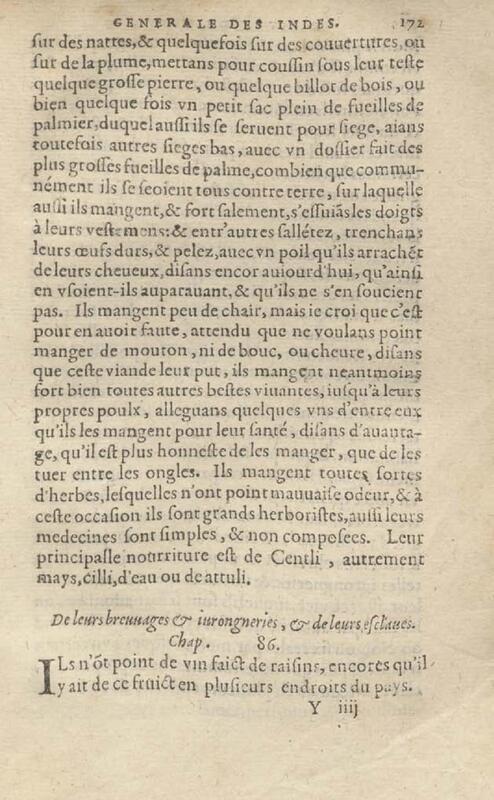 GENERALE DES INDES. 172
ſur des nattes,& quelquefois ſur des couuertures, ou
ſur de la plume, mettans pour couſsin ſous leur teſte
quelque groſſe pierre, ou quelque billot de bois, ou
bien quelque fois vn petit ſac plein de fueilles de
palmier, duquel auſsi ils ſe ſeruent pour ſiege, aians
toutefois autres ſieges bas, auec vn doſsier fait des
plus groſſes fueilles de palme, combien que commu-
nément ils ſe ſeoient tous contre terre, ſur laquelle
auſsi ils mangent,& fort ſalement, s'eſſuiãs les doigts
à leurs veſtemens:& entr'autres ſallétez, trenchans
leurs œufs durs,& pelez, auec vn poil qu'ils arrachẽt
de leurs cheueux, diſans encor auiourd'hui, qu'ainſi
en vſoient-ils auparauant,& qu'ils ne s'en ſoucient
pas. Ils mangent peu de chair, mais ie croi que c'eſt
pour en auoir faute, attendu que ne voulans point
manger de mouton, ni de bouc, ou cheure, diſans
que ceſte viande leur put, ils mangent neantmoins
fort bien toutes autres beſtes viuantes, iuſqu'à leurs
propres poulx, alleguans quelques vns d'entre eux
qu'ils les mangent pour leur ſanté, diſans d'auanta-
ge, qu'il eſt plus honneſte de les manger, que de les
tuer entre les ongles. Ils mangent toutes ſortes
d'herbes, leſquelles n'ont point mauuaiſe odeur,& à
ceſte occaſion ils ſont grands herboriſtes, auſsi leurs
medecines ſont ſimples, & non compoſees. Leur
principalle nourriture eſt de Centli, autrement
mays, cilli, d'eau ou de attuli.
De leurs breuuages & iurongneries, & de leurs eſclaues.
Chap. 86.
ILs n'õt point de vin faict de raiſins, encores qu'il
y ait de ce fruict en pluſieurs endroits du pays.
Y iiij